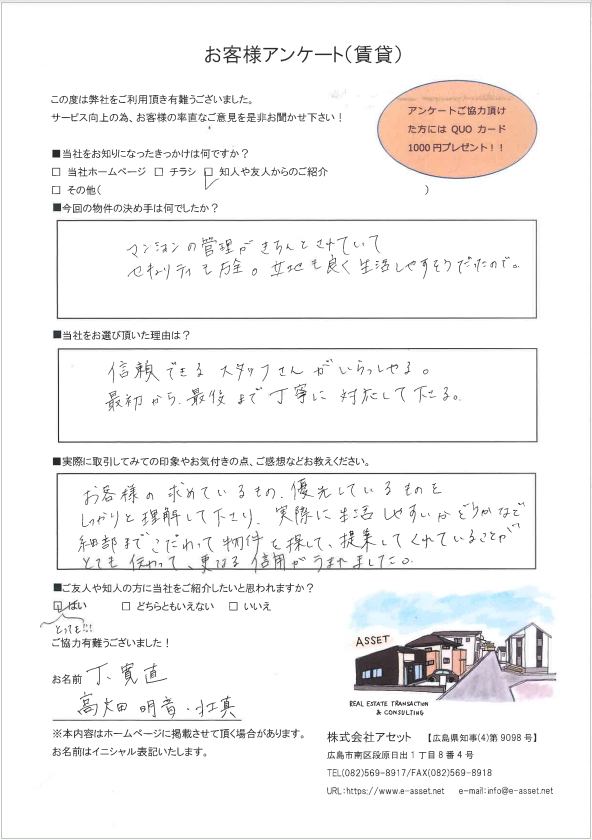 お客様アンケート(賃貸)
この度は弊社をご利用頂き有難うございました。
サービス向上の為、お客様の率直なご意見を是非お聞かせ下さい！
アンケートご協力頂け
た方には QUO カード
1000 円プレゼント！！
■当社をお知りになったきっかけは何ですか？
□ 当社ホームページ □ チラシ □ 知人や友人からのご紹介
□ その他( )
■今回の物件の決め手は何でしたか？
マンションの管理がきちんとされていて
セキュリティも万全。立地も良く生活しやすそうだったので。
■当社をお選び頂いた理由は？
信頼できるスタッフさんがいらっしゃる。
最初から、最後まで丁寧に対応して下さる。
■実際に取引してみての印象やお気付きの点、ご感想などお教えください。
お客様の求めているもの、優先しているものを
しっかりと理解して下さり、実際に生活しやすいかどうかなど
細部までこだわって物件を探して、提案してくれていることが
とても伝わって、更なる信用がうまれました。
■ご友人や知人の方に当社をご紹介したいと思われますか？
□ はい □ どちらともいえない □ いいえ
とっても!!!
ご協力有難うございました！
お名前 下 寛直
高太田 明音・
※本内容はホームページに掲載させて頂く場合があります。
お名前はイニシャル表記いたします。
ASSET
REAL ESTATE TRANSACTION
& CONSULTING
株式会社アセット 【広島県知事(4)第 9098 号】
広島市南区段原日出 1 丁目 8 番 4 号
TEL(082)569-8917/FAX(082)569-8918
URL:https://www.e-asset.net e-mail:info@e-asset.net